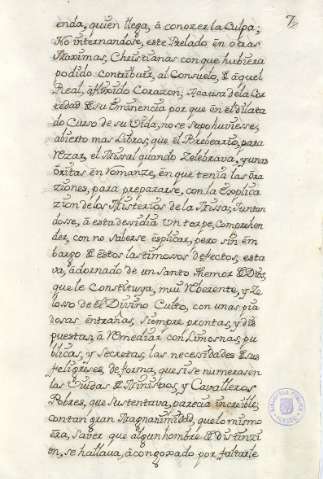 7
enda, quien llega, à conozer la Culpa;
No internandose, este Prelado en otras
Maximas, Christianas con que hubiera
podido Contribuir, al Consuelo, de aquel
Real, afligido Corazon; A causa de la Cor
tedad de su Eminencia por que en el dilata
do Curso de su Vida, no se supo huuiesse,
abierto mas Libros, que el Brebiario, para
Rezar, el Missal quando Zelebrava, y unas
oritas en Romanze, en que tenia las Ora
ziones, para prepararse, con la Explica
zion de los Misterios de la Missa; Juntan
dosse, à esta desidia Un torpe, Comprehen
der, con no saberse explicar, pero sin em
bargo de estos lastimosos defectos, esta
va, adornado de un santo themor de Dios,
que le Constituya, mui Reverente, y Ze
loso de el Divino Culto, con unas pia
dosas entrañas, siempre prontas, y dis
puestas, à Remediar con Limosnas, pu
blicas, y secretas, las necesidades de sus
feligreses, de forma, que si se numerasen
las Viudas de Ministros, y Cavalleros
Pobres, que sustentava, parecia increible,
con tan gran Magnanimidad, que lo mismo
era, saber que algun hombre de distinzi
on, se hallava, acongojado por faltarle